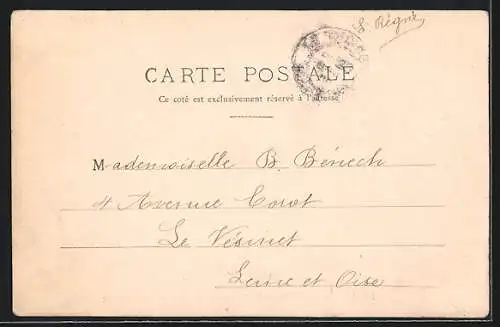 St Régné
CARTE POSTALE
Ce coté est exclusivement réservé à l'adresse
Mademoiselle B. Bénech
4 Avenue Corot
Le Vésinet
Seine et Oise